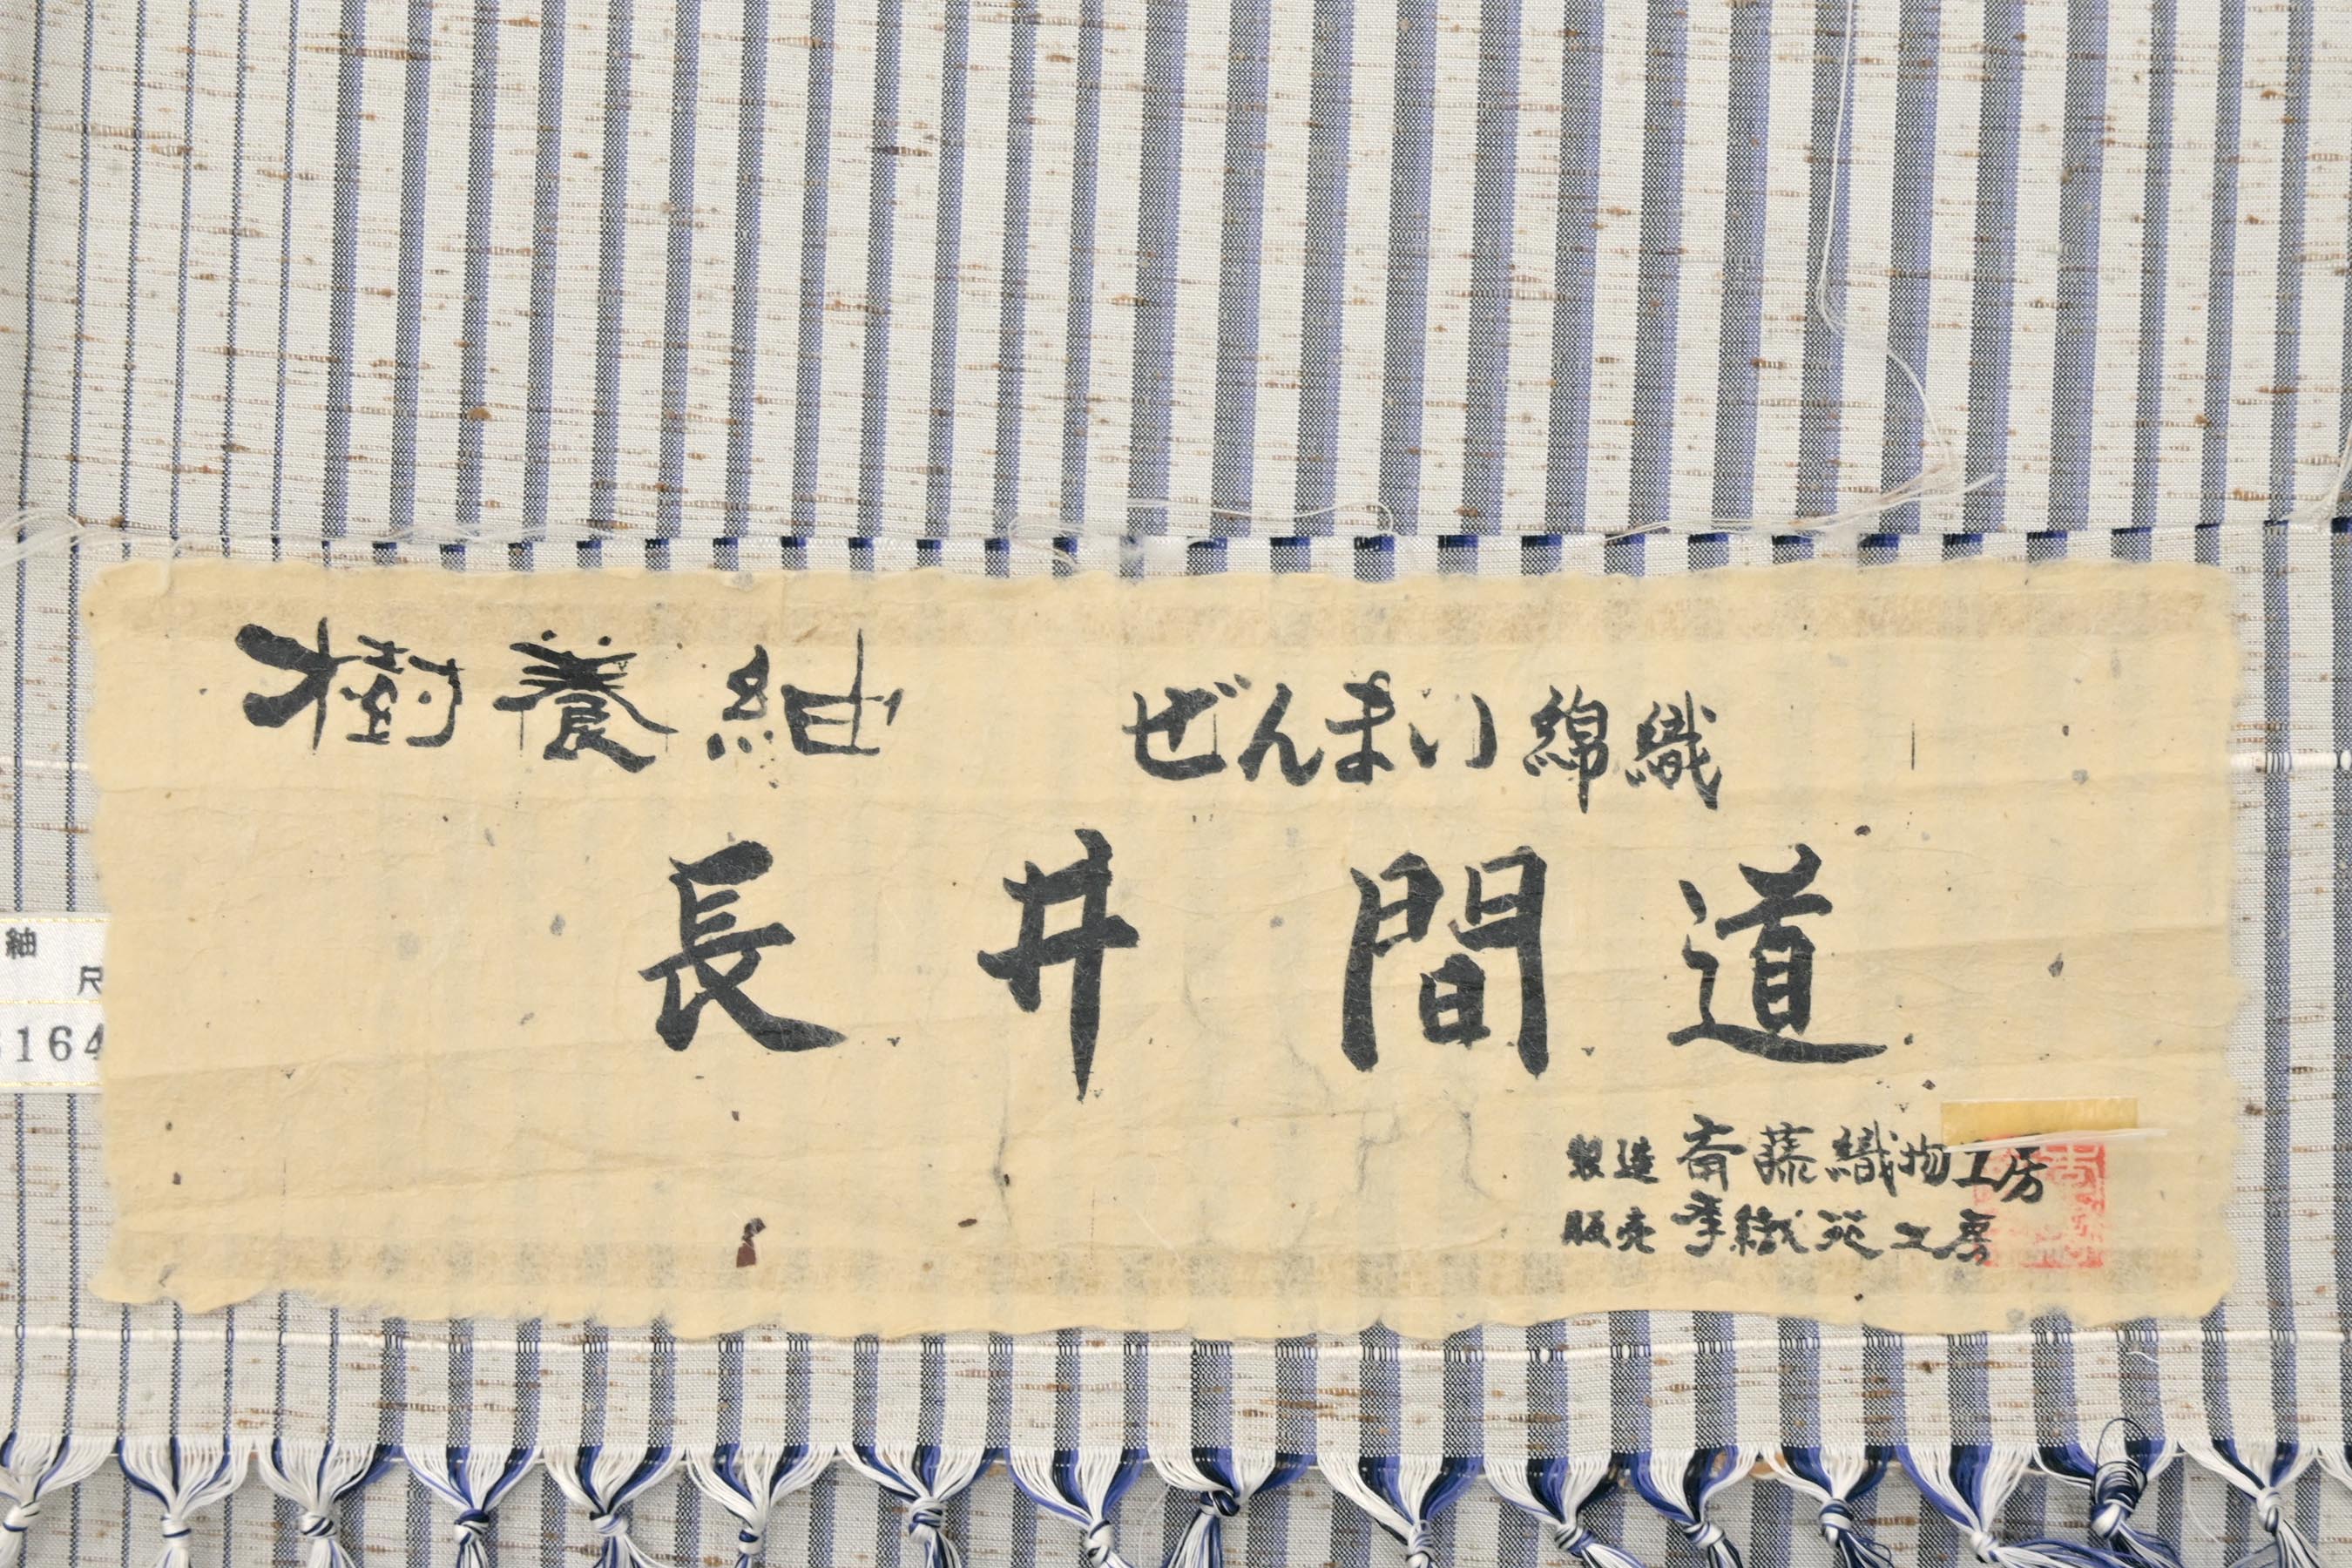 樹養紬 ぜんまい綿織
長井間道
製造 斎藤織物工房
販売 季織苑工房
紬
尺
164